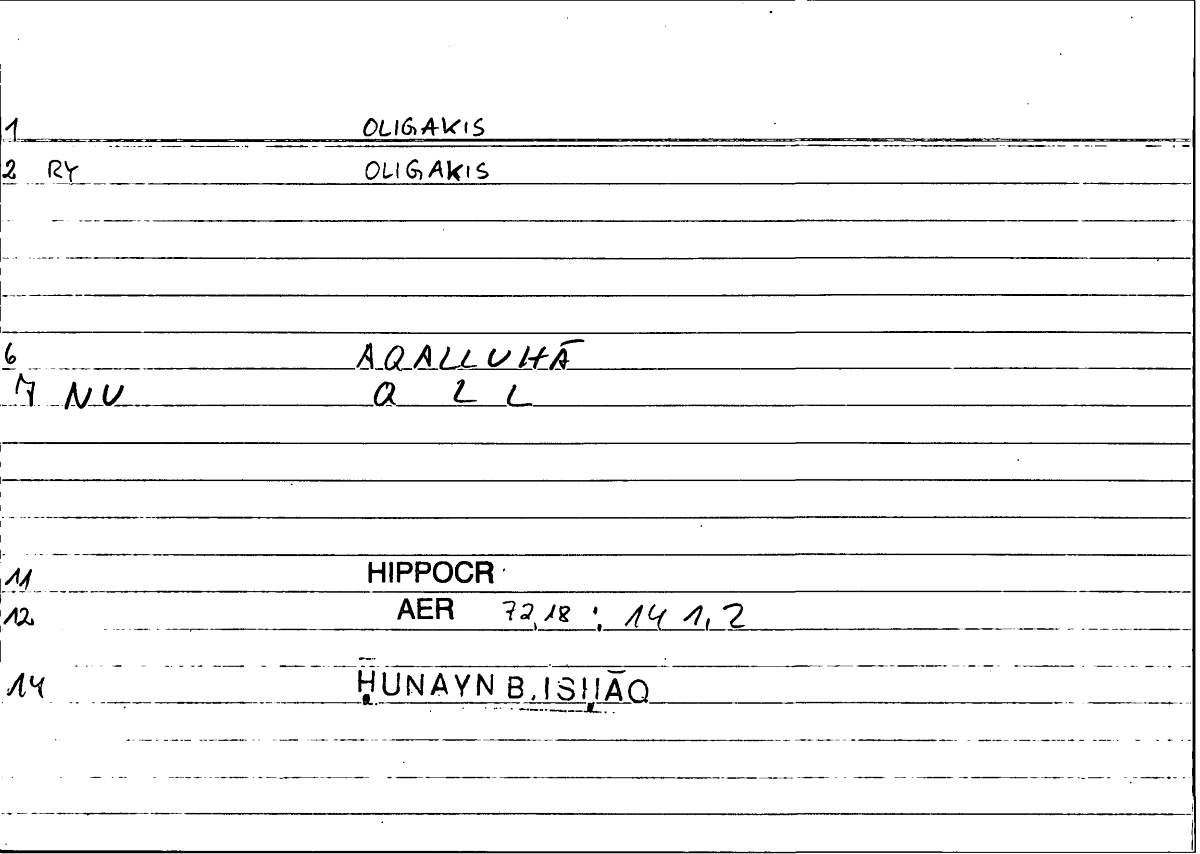 1 OLIGAKIS
2 RY OLIGAKIS
6 AQALLUHĀ
7 NU Q L L
11 HIPPOCR
12 AER 72,18 ; 14 1,2
14 ḤUNAYN B. ISḤĀQ